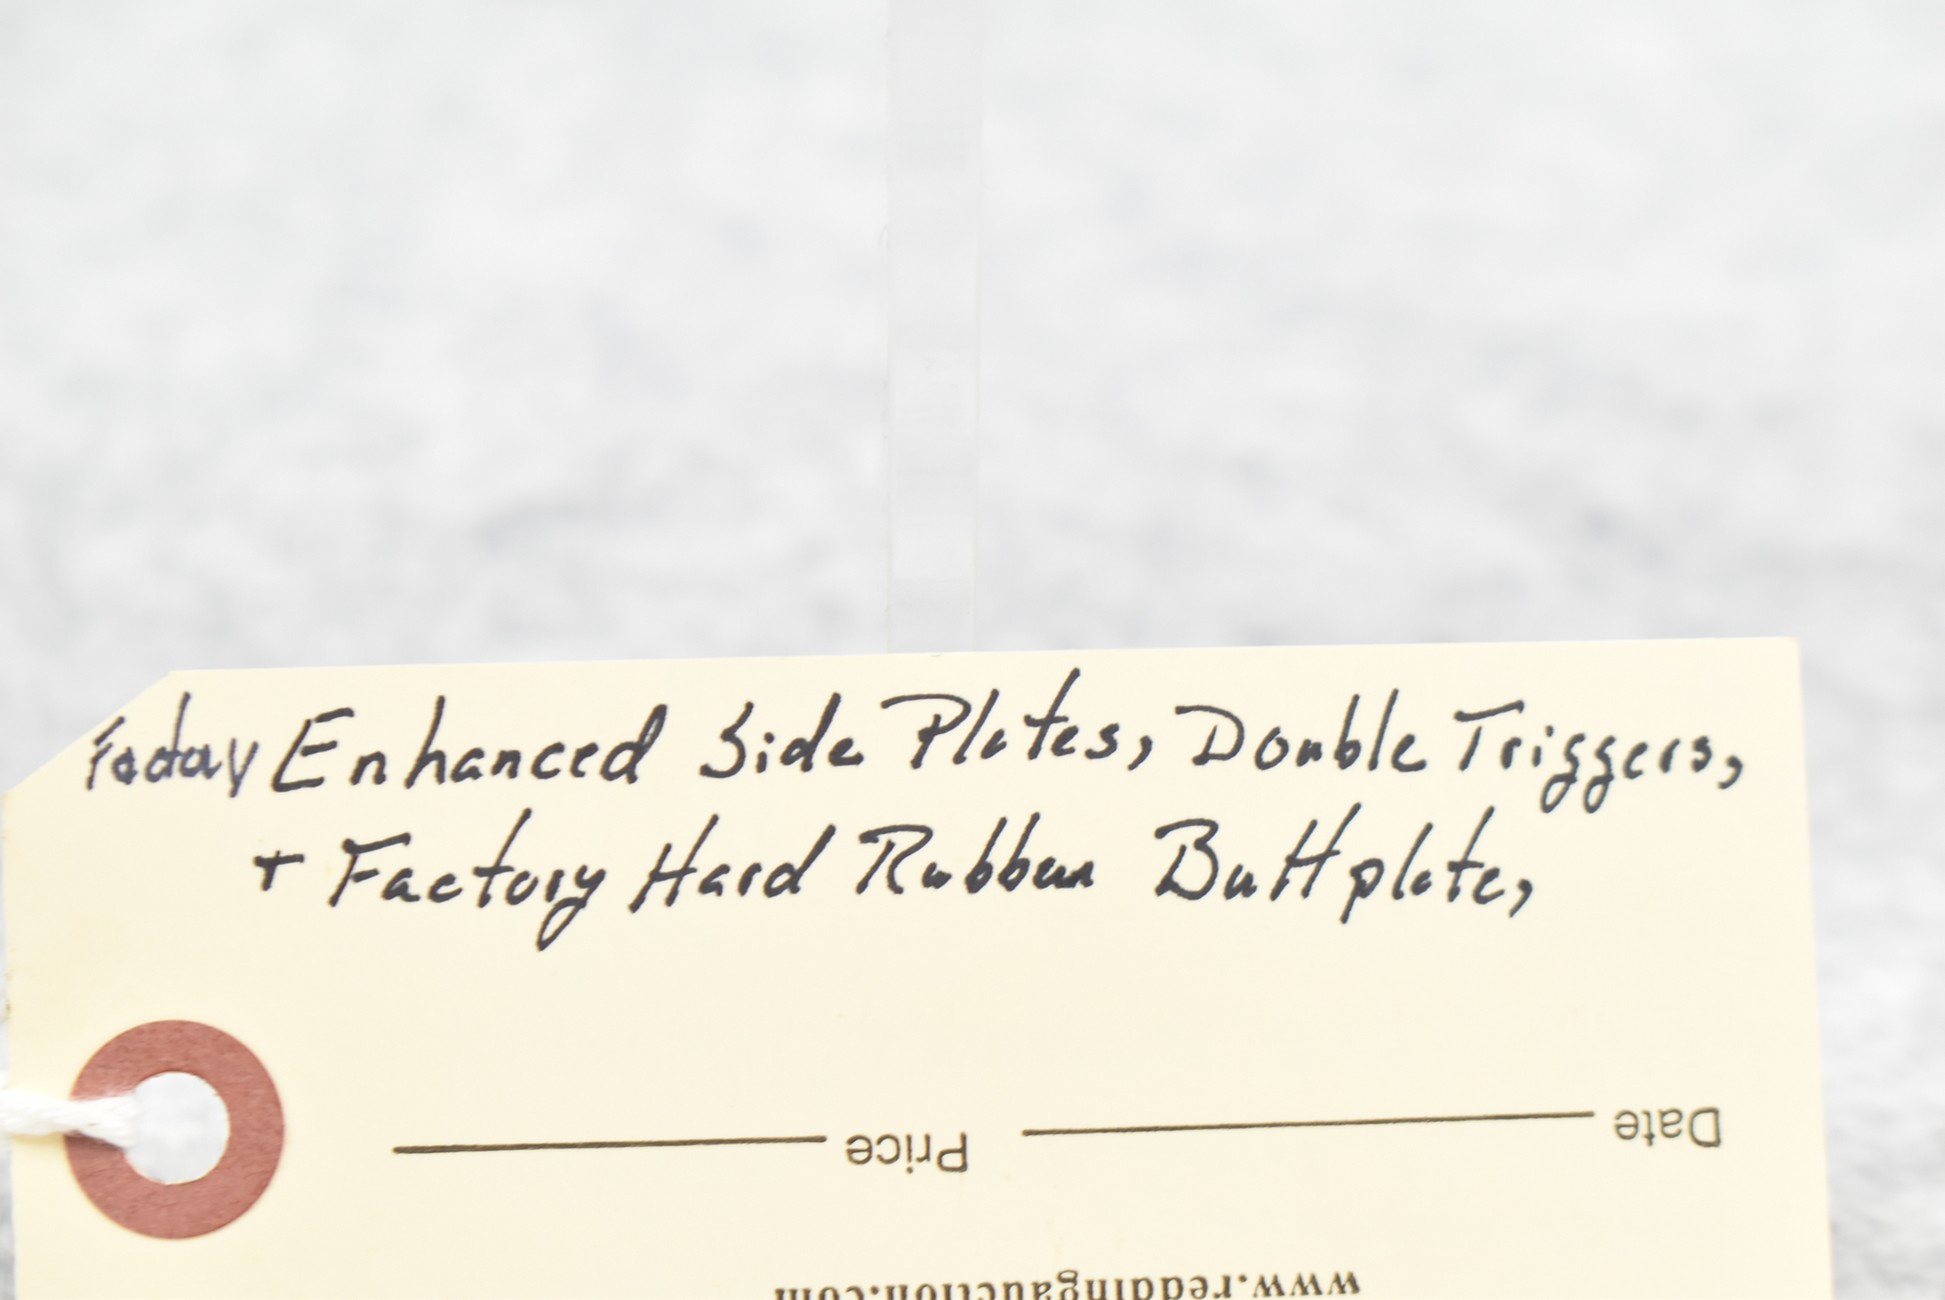 Today Enhanced Side Plates, Double Triggers,
+ Factory Hard Rubber Buttplate,
Price Date
www.redingauction.com